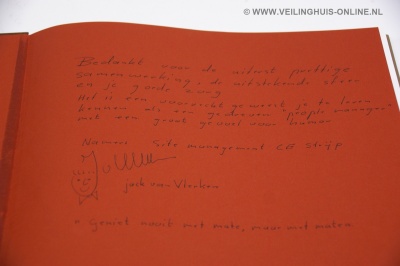 © WWW.VEILINGHUIS-ONLINE.NL
Bedankt voor de uiterst prettige
samenwerking, de uitstekende sfeer
en je goede zorg
Het is een voorrecht geweest je te leren
kennen als een gedreven "people manager"
met een groot gevoel voor humor
Namens Site management CE Strijp
Jack van
* Geniet nooit met mate, maar met maten